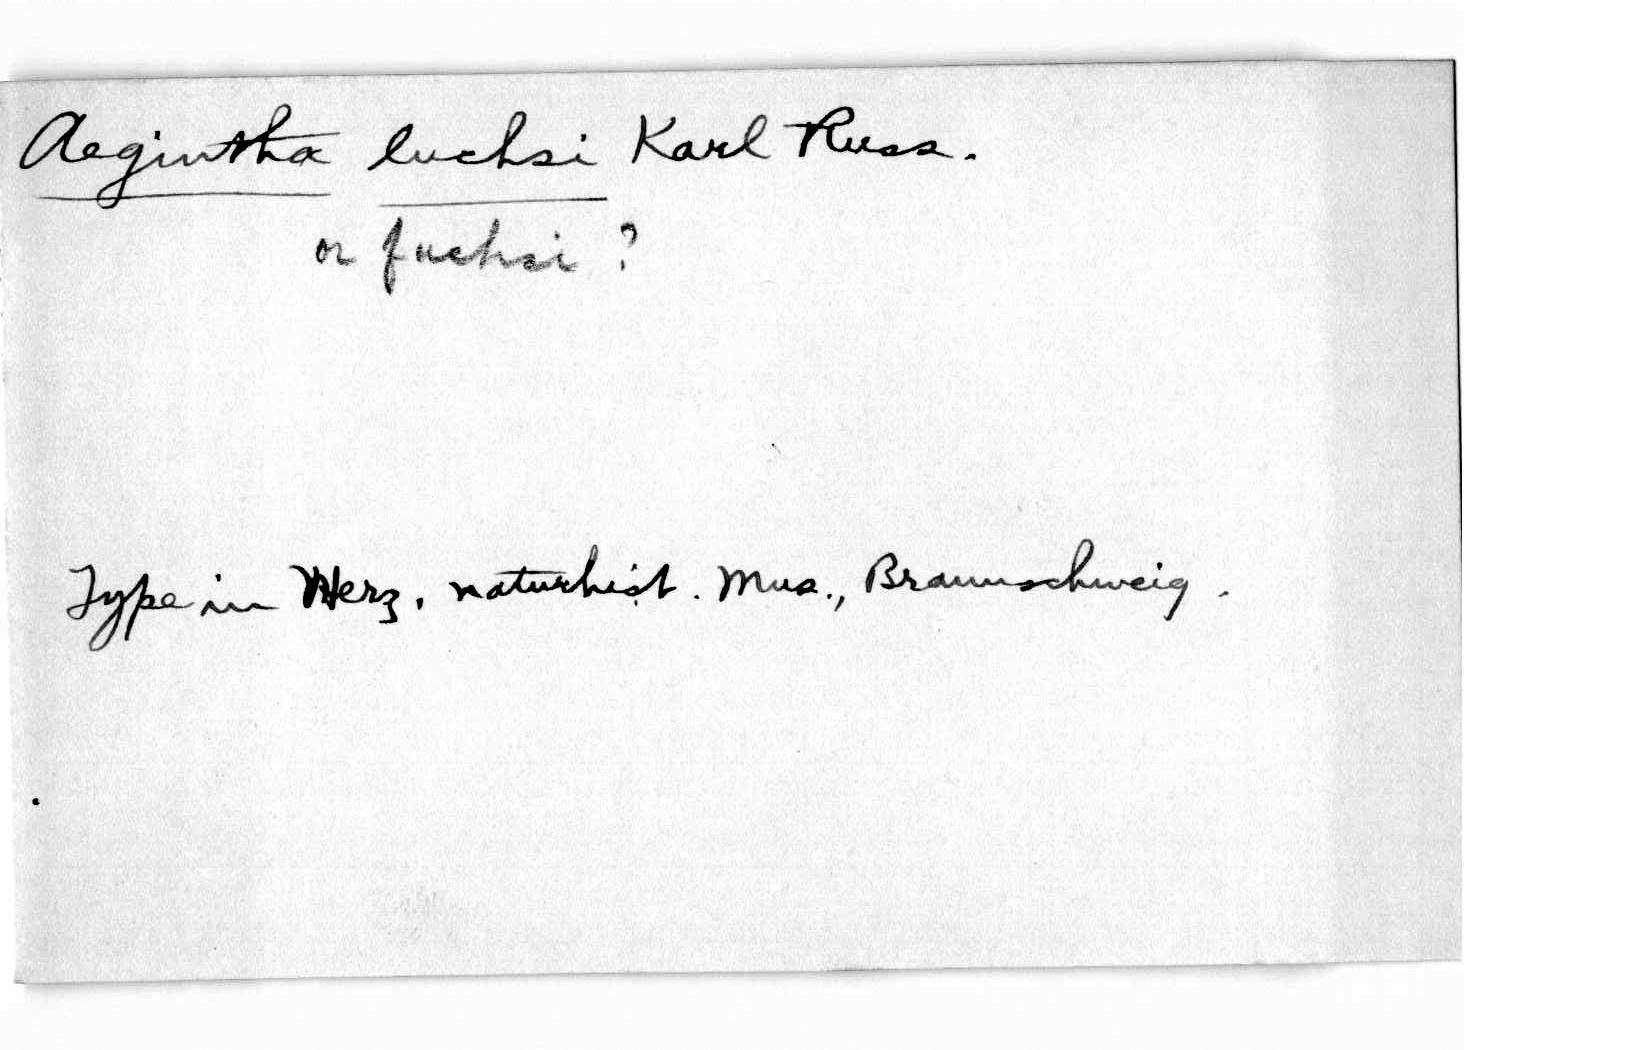 Aegintha luchsi Karl Russ.
or fuchsi ?
Type in Herz. naturhist. Mus., Braunschweig.